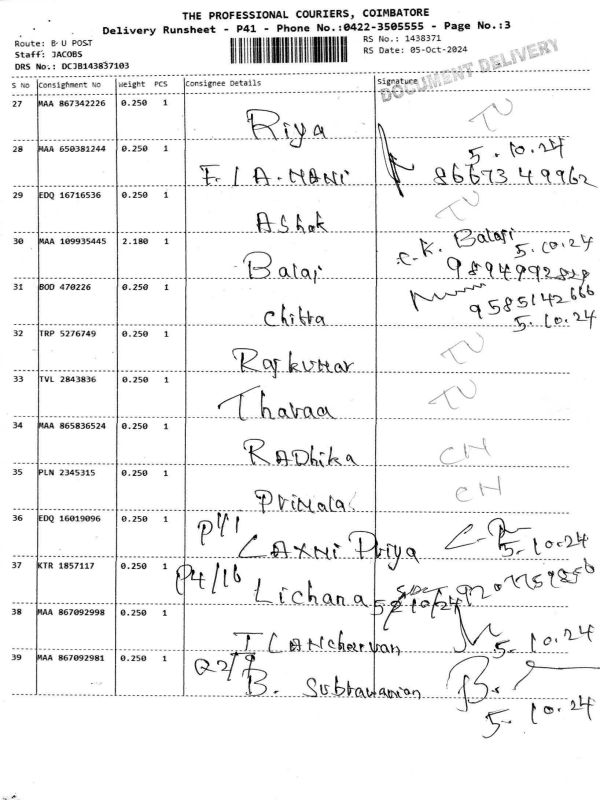 THE PROFESSIONAL COURIERS, COIMBATORE
Delivery Runsheet - P41 - Phone No.:0422-3505555 - Page No.:3
Route: B U POST
Staff: JACOBS
DRS No.: DCJB143837103
RS No.: 1438371
RS Date: 05-Oct-2024
DOCUMENT DELIVERY
S No Consighment No Weight PCS Consignee Details Signature
27 MAA 867342226 0.250 1 Riya TU
28 MAA 650381244 0.250 1 5.10.24
86673 49962
29 EDQ 16716536 0.250 1 Ashok TU
30 MAA 109935445 2.180 1 Balaji C.K. Balaji 5.10.24
9894992828
31 BOD 470226 0.250 1 Chitra 9585142666
5.10.24
32 TRP 5276749 0.250 1 Rajkumar TU
33 TVL 2843836 0.250 1 TU
34 MAA 865836524 0.250 1 RADhika CN
35 PLN 2345315 0.250 1 CN
36 EDQ 16019096 0.250 1 P41 LAXNi Priya 5.10.24
37 KTR 1857117 0.250 1 P4/16 Lichana 5/10/24
38 MAA 867092998 0.250 1 5.10.24
39 MAA 867092981 0.250 1 Q2/9 B. Subramanian B.
5.10.24